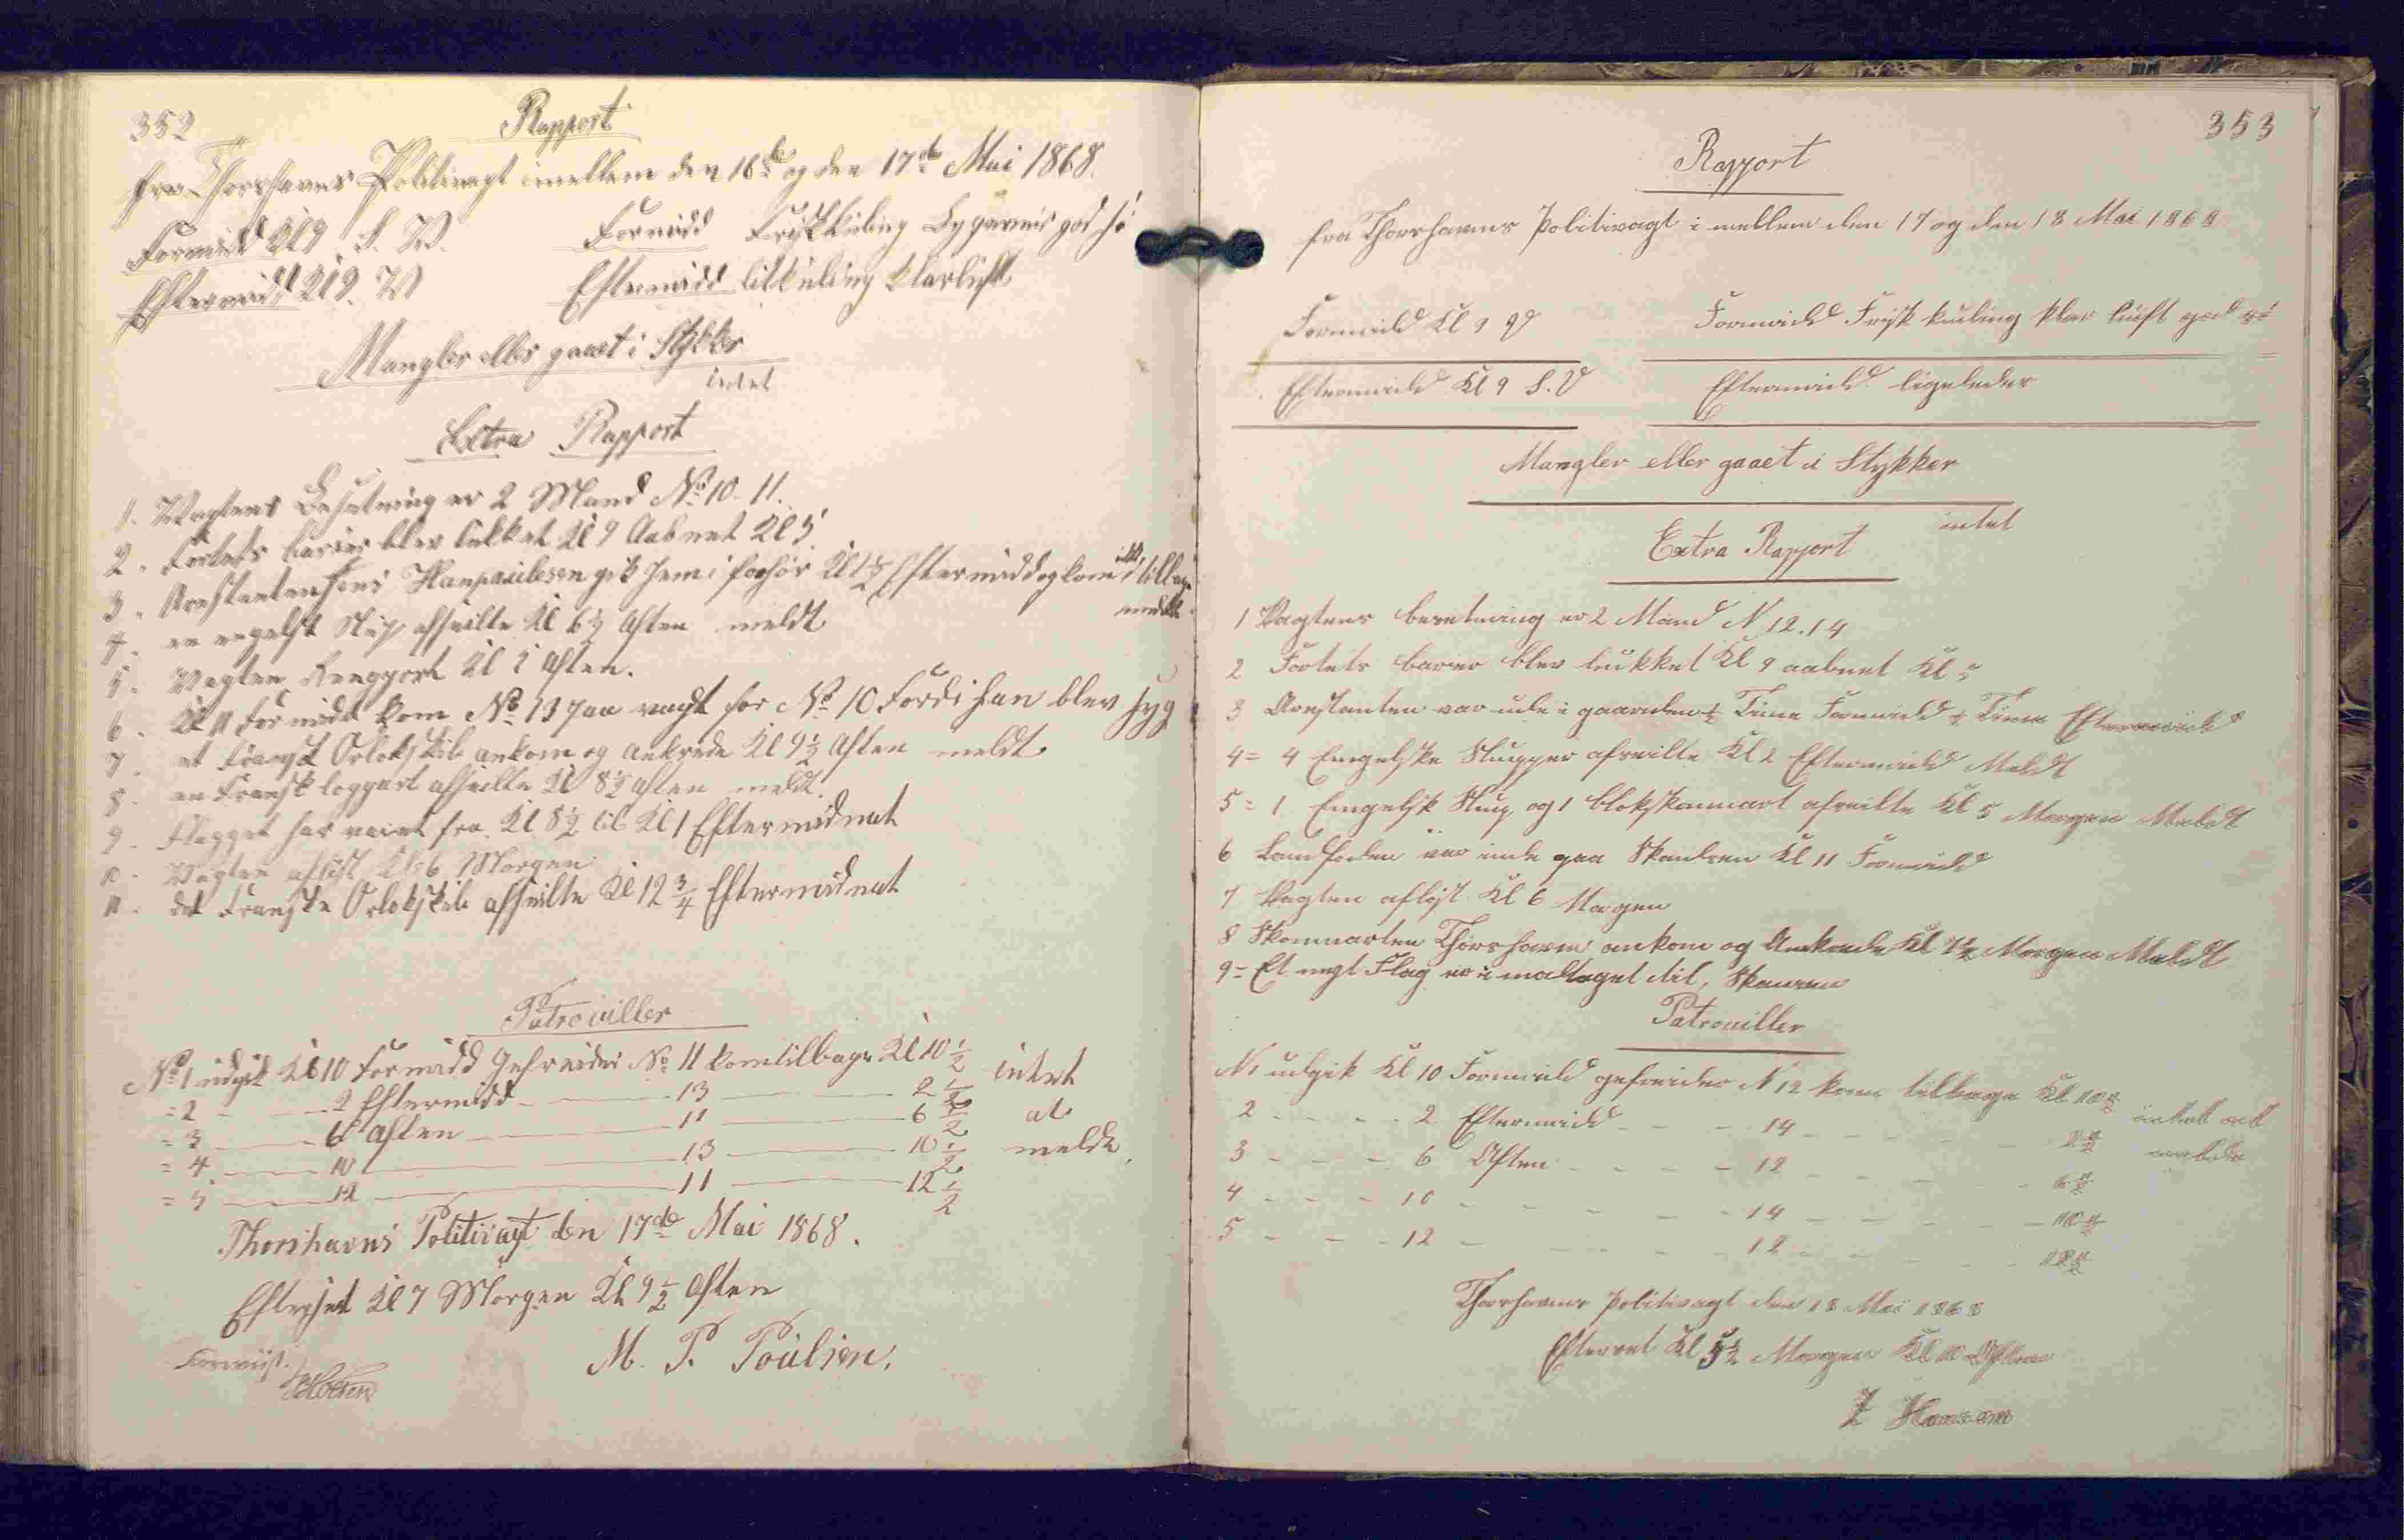 352
Rapport
fra Thorshavns Politivagt imellem den 16de og den 17de Mai 1868.
Formidd Kl 9 S. W. Formidd Friskkuling god sö
Eftermidd Kl 9. W Eftermidd litkuling klarluft
Mangler eller gaaet i Stykker
intet
Extra Rapport
1. Vagtens Besetning er 2 Mand No 10. 11.
2. Fortets barier blev lukket Kl 9 Aabnet Kl 5
3. Arestanten Jens Hanpaulesen gik hem i forhör Kl 1½ Eftermidd og kom ikke tilbage
meldt
4. en engelsk Slup afseilte Kl 6½ Aften meldt
5. Vagten Kl Aften.
6. Kl 11 Formidd kom No 13 paa vagt for No 10 Fordi han blev syg
7. et Fransk Orlokskib ankom og ankrede Kl 9½ Aften meldt
8. en Fransk loggart afseilte Kl 8½ Aften meldt.
9. Flagget har veiet fra Kl 8½ til Kl 1 Eftermidnat
10. Vagten aflöst Kl 6 Morgen
11. det Franske Orlokskib afseilte Kl 12¾ Eftermidnat
Patrouiller
No 1 udgik Kl 10 Formidd Gefreider No 11 kom tilbage Kl 10½ intet
= 2 - 2 Eftermidd - 13 - 2½
= 3 - 6 Aften - 11 - 6½ at
= 4 - 10 - 13 - 10½ melde
= 5 - 12 - 11 - 12½
Thorshavns Politivagt den 17de Mai 1868.
Efterset Kl 7 Morgen Kl 9½ Aften
M. P. Poulsen.
Forevist.
353
Rapport
fra Thorshavns Politivagt i mellem den 17 og den 18 Mai 1868
Formidd Kl 9 V Formidd Frisk kuling klar luft god sö
Eftermidd Kl 9 S. V Eftermidd ligeledes
Mangler eller gaaet i Stykker
intet
Extra Rapport
1 Vagtens besetning er 2 Mand N 12. 14
2 Fortets barier blev lukket Kl 9 aabnet Kl 5
3 Arestanten var ude i gaarden ½ Time Formidd ½ Time Eftermidd
4 = 4 Engelske Slupper afseilte Kl 2 Eftermidd Meldt
5 = 1 Engelsk Slup og 1 blokskonnart afseilte Kl 5 Morgen Meldt
6 Landfoden var inde paa Skandsen Kl 11 Formidd
7 Vagten aflöst Kl 6 Morgen
8 Skonnarten Thorshavn ankom og Ankrede Kl 7½ Morgen Meldt
9 = Et nyt Flag er i modtaget til, Skansen
Patrouiller
N 1 udgik Kl 10 Formidd gefreider N 12 kom tilbage Kl 10½ intet at
2 - - - - 2 Eftermidd - - - 14 - - - - 2½ melde
3 - - - 6 Aften - - - - 12 - - - - 6½
4 - - - 10 - - - - - 14 - - - - 10½
5 - - - 12 - - - - 12 - - - - 12½
Thorshavns Politivagt den 18 Mai 1868
Efterset Kl 5½ Morgen Kl 10 Aften
J Hansen